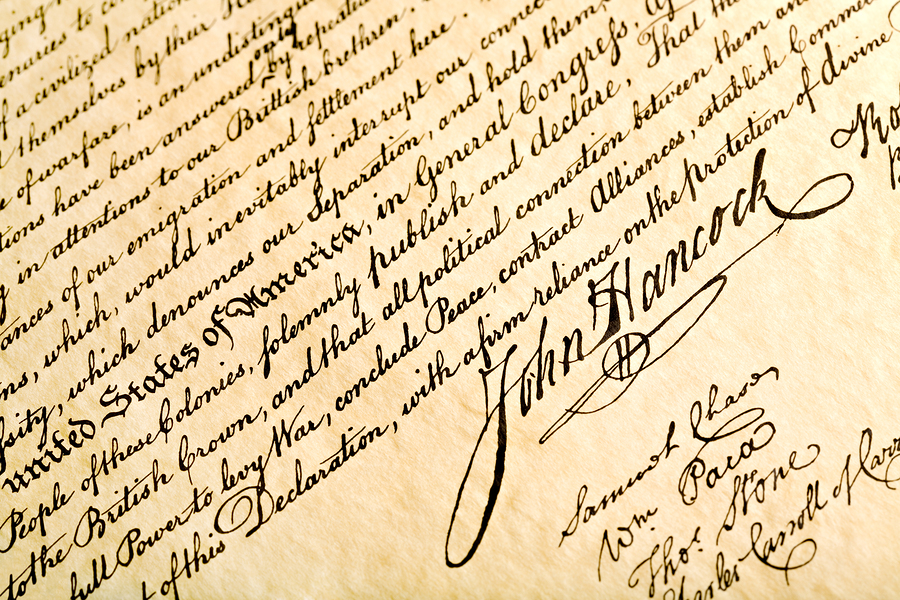 enaries to
of a civilized nation
themselves by their
of warfare, is an undistinguis
only
tions have been answered by repeated
g in attentions to our Brittish brethren.
ances of our emigration and ſettlement here.
ns, which, would inevitably interrupt our connec
ſsity, which denounces our Separation, and hold them,
united States of America, in General Congreſs,
People of these Colonies, ſolemnly publish and declare, That the
to the British Crown, and that all political connection between them an
full Power to levy War, conclude Peace, contract Alliances, establish Commer
t of this Declaration, with a firm reliance on the protection of divine
John Hancock
Samuel Chase
Wm Paca
Thos. Stone
Charles Carroll of Carr